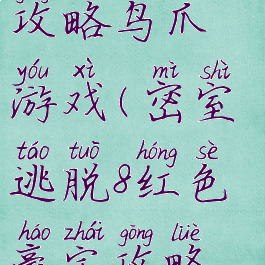 攻略鸟爪
yóu xì mì shì
游戏(密室
táo tuō hóng sè
逃脱8红色
háo zhái gōng lüè
豪宅攻略